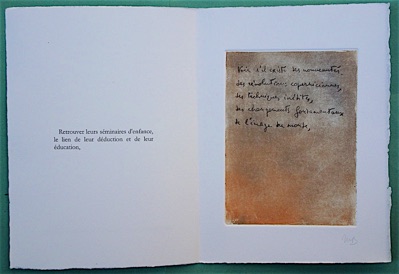 Retrouver leurs séminaires d'enfance,
le lien de leur déduction et de leur
éducation,
Voir s'il existe des nouveautés
des révolutions coperniciennes,
des techniques inédites,
des changements fondamentaux
de l'image du monde,